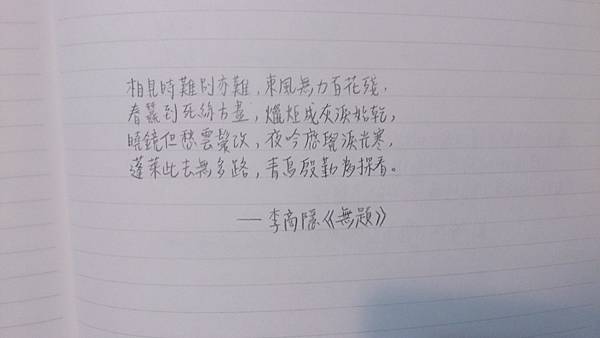 相見時難別亦難，東風無力百花殘，
春蠶到死絲方盡，蠟炬成灰淚始乾，
曉鏡但愁雲鬢改，夜吟應覺淚光寒，
蓬萊此去無多路，青鳥殷勤為探看。
——李商隱《無題》